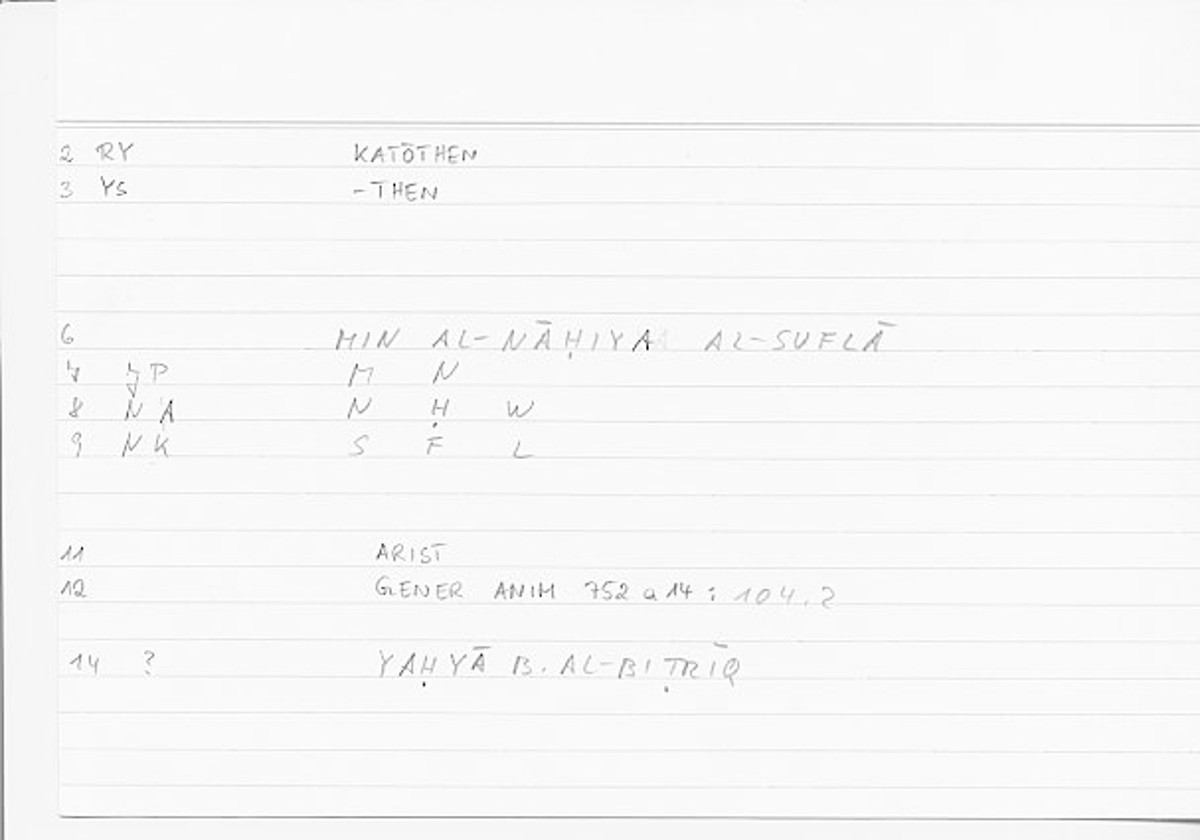 2 RY KATŌTHEN
3 YS -THEN
6 MIN AL-NĀḤIYA AL-SUFLĀ
7 JP M N
8 NA N Ḥ W
9 NK S F L
11 ARIST
12 GENER ANIM 752 a 14 : 104.2
14 ? YAḤYĀ B. AL-BIṬRĪQ